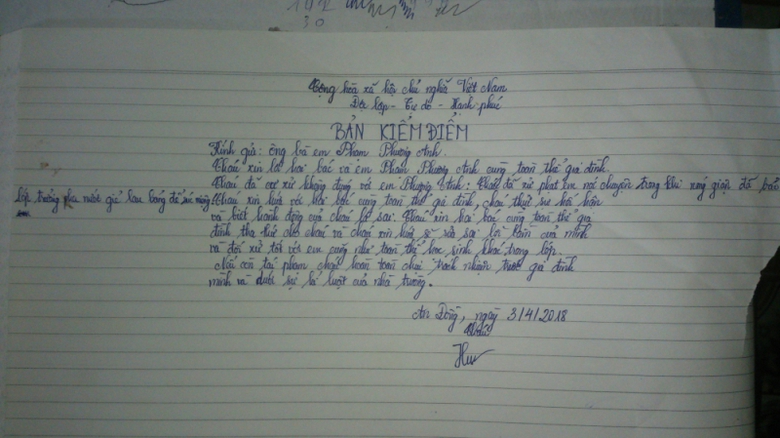 30
Cộng hòa xã hội chủ nghĩa Việt Nam
Độc lập - Tự do - Hạnh phúc
BẢN KIỂM ĐIỂM
Kính gửi: ông bà em Phạm Phương Anh.
Cháu xin lỗi hai bác và em Phạm Phương Anh cùng toàn thể gia đình.
Cháu đã cư xử không đúng với em Phương Anh: Cháu đã xử phạt em nói chuyện trong khi nóng giận đã bảo
Lớp trưởng pha nước giẻ lau bảng để súc miệng. Cháu xin hứa với hai bác cùng toàn thể gia đình, cháu thực sự hối hận
và biết hành động của cháu là sai. Cháu xin hai bác cùng toàn thể gia
đình tha thứ cho cháu và cháu xin hứa sẽ sửa sai lỗi lầm của mình
và đối xử tốt với em cũng như toàn thể học sinh khác trong lớp.
Nếu còn tái phạm cháu hoàn toàn chịu trách nhiệm trước gia đình
mình và dưới sự kỉ luật của nhà trường.
An Đồng, ngày 3/4/2018
Cháu